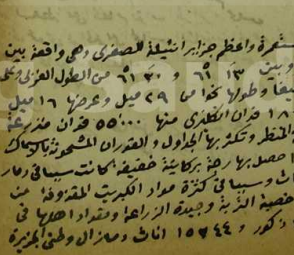 مستعمرة واعظم جزاير انتيلة الصغرى وهي واقعة بين
وبين ١٣ ٦١ و ٣٠ ٦١ من الطول الغربي وعلى
وطولها نحوا من ٢٩ ميل وعرضها ١٦ ميل
فدان انكليزي منها ٥٥٠٠٠ فدان منزرعة
المنظر وتكثر بها الجداول والغدران المشحونة بالاسماك
حصل بها رجة بركانية خفيفة كانت سببا في دمار
وسببا في كثرة مواد الكبريت المقذوفة من
خصبة التربة وجيدة الزراعة ومقدار اهلها في
ذكور و ١٥٢٤٤ اناث وما زال وطني الجزيرة